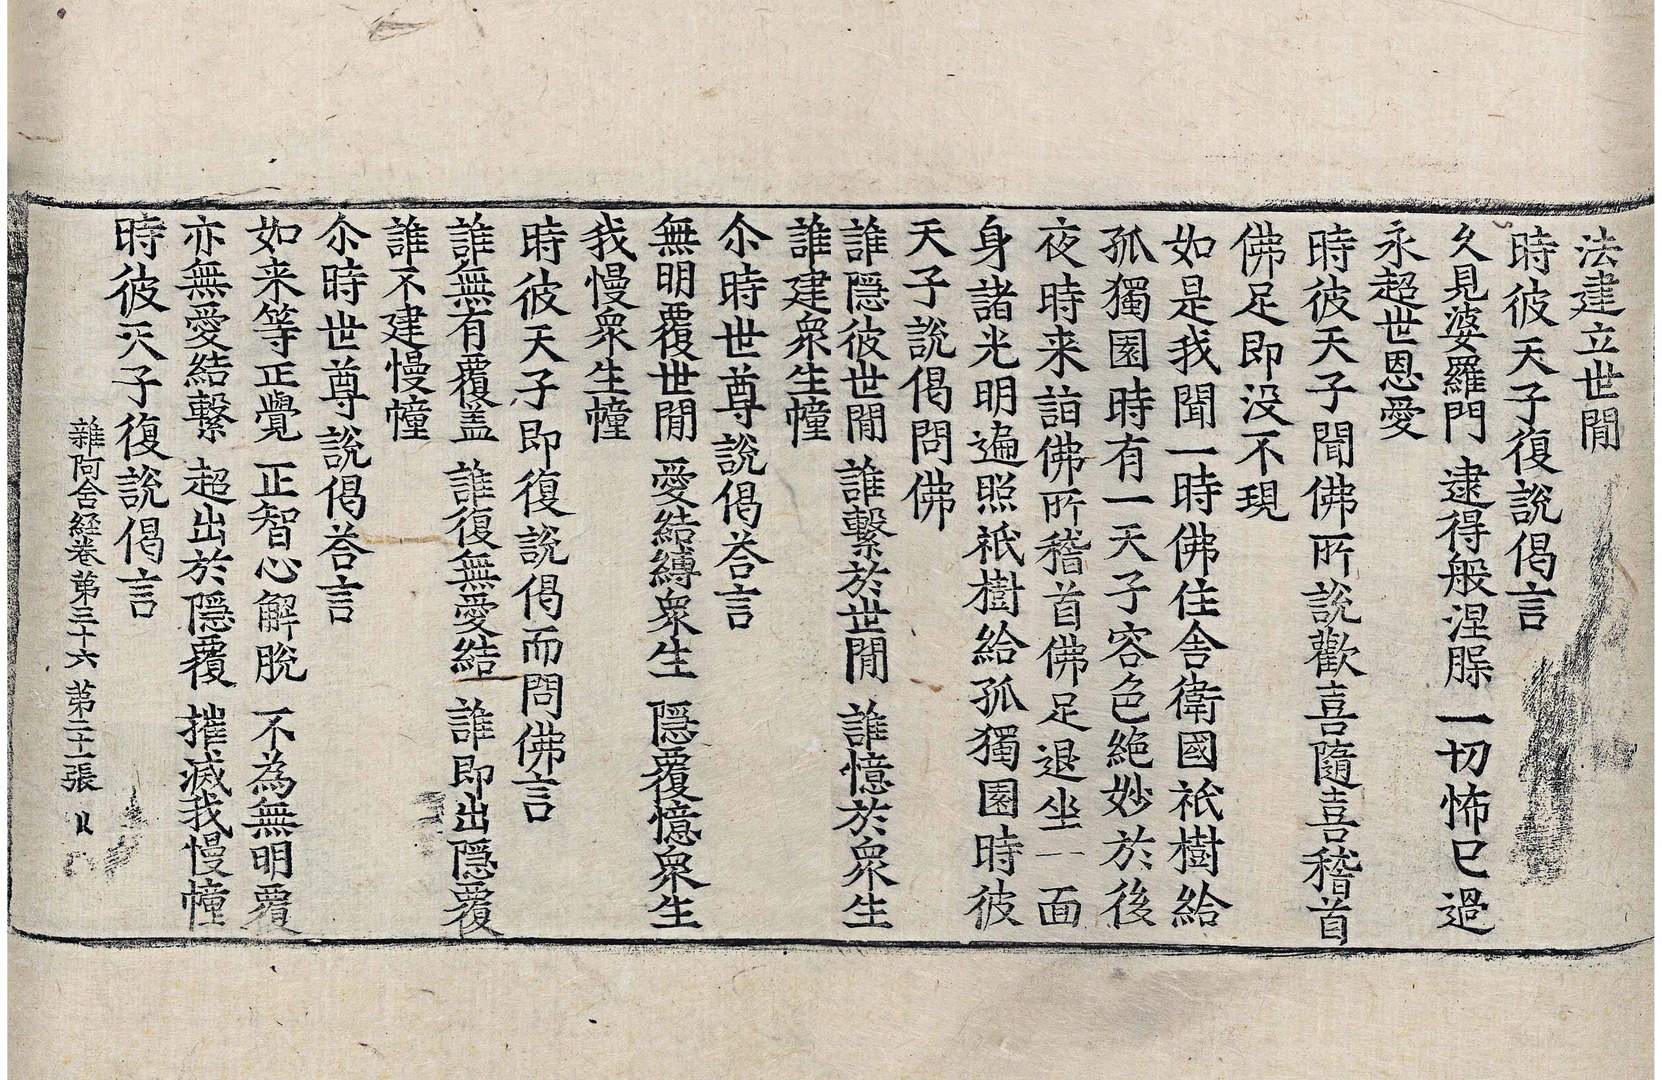 法建立世閒
時彼天子復說偈言
久見婆羅門 逮得般涅槃 一切怖已過
永超世恩愛
時彼天子聞佛所說歡喜隨喜稽首
佛足即沒不現
如是我聞一時佛住舍衛國祇樹給
孤獨園時有一天子容色絶妙於後
夜時来詣佛所稽首佛足退坐一面
身諸光明遍照祇樹給孤獨園時彼
天子說偈問佛
誰隱彼世閒 誰繫於世閒 誰憶於衆生
誰建衆生幢
尒時世尊說偈荅言
無明覆世閒 愛結縛衆生 隱覆憶衆生
我慢衆生幢
時彼天子即復說偈而問佛言
誰無有覆盖 誰復無愛結 誰即出隱覆
誰不建慢幢
尒時世尊說偈荅言
如来等正覺 正智心解脫 不為無明覆
亦無愛結繫 超出於隱覆 摧滅我慢幢
時彼天子復說偈言
雜阿含経卷第三十六 第二十一張